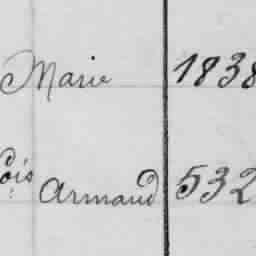 Marie 1838
ois Armand 532